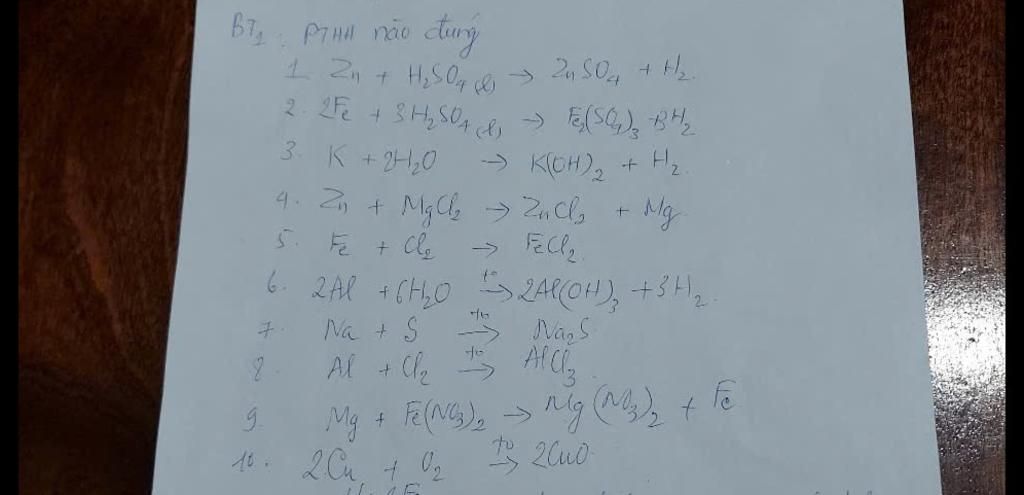 BT1: PTHH nào đúng
1. Zn + H2SO4 (l) → ZnSO4 + H2.
2. 2Fe + 3H2SO4 (l) → Fe2(SO4)3 + 3H2
3. K + 2H2O → K(OH)2 + H2.
4. Zn + MgCl2 → ZnCl2 + Mg.
5. Fe + Cl2 → FeCl2.
6. 2Al + 6H2O to→ 2Al(OH)3 + 3H2.
7. Na + S to→ Na2S.
8. Al + Cl2 to→ AlCl3.
9. Mg + Fe(NO3)2 → Mg(NO3)2 + Fe
10. 2Cu + O2 to→ 2CuO